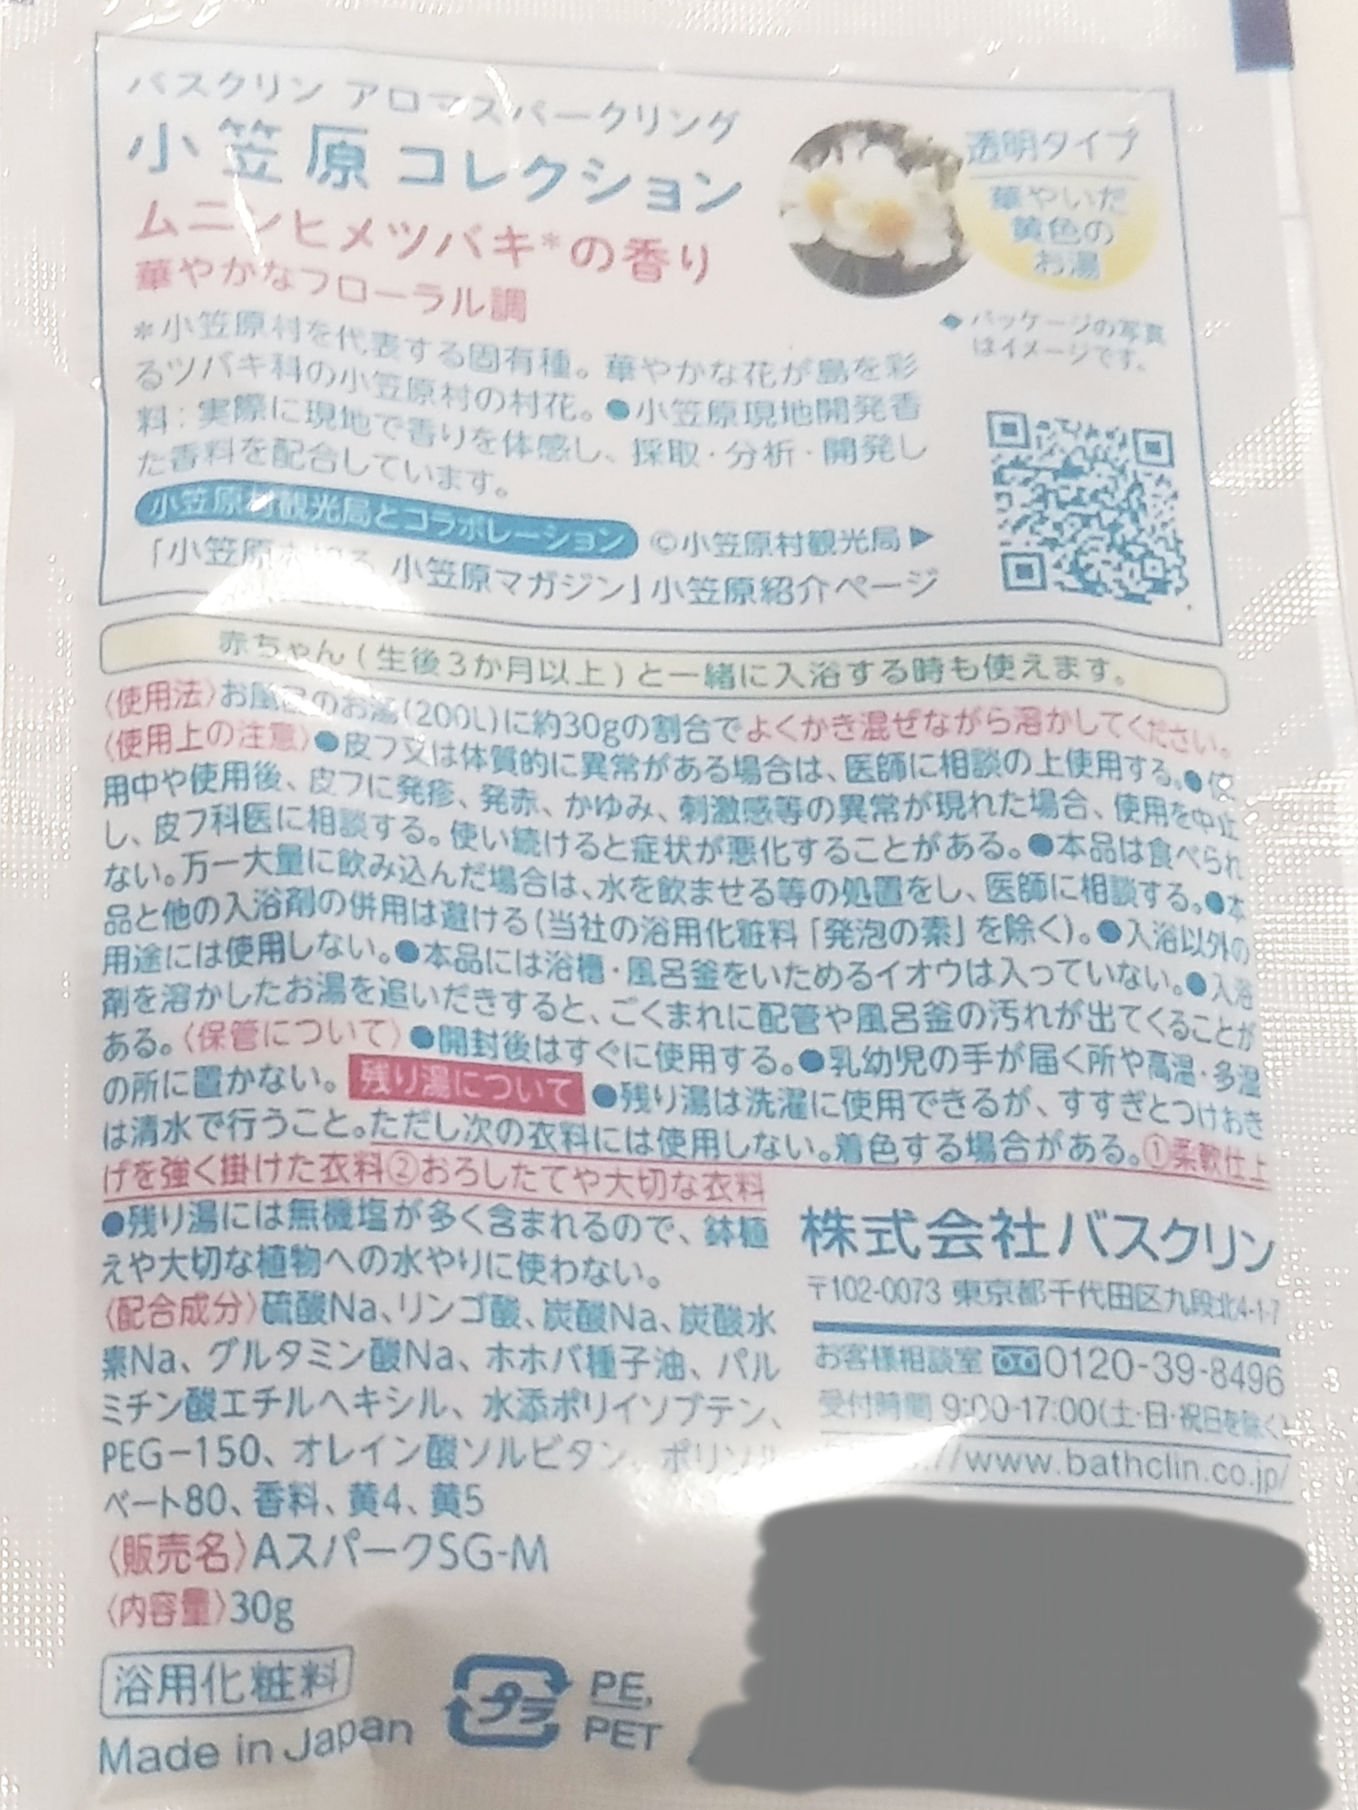 バスクリン アロマスパークリング
小笠原コレクション
ムニンヒメツバキ*の香り
華やかなフローラル調
透明タイプ
華やいだ
黄色の
お湯
◆パッケージの写真
はイメージです。
*小笠原村を代表する固有種。華やかな花が島を彩
るツバキ科の小笠原村の村花。●小笠原現地開発香
料：実際に現地で香りを体感し、採取・分析・開発し
た香料を配合しています。
小笠原村観光局とコラボレーション
©小笠原村観光局▶
「小笠原 る 小笠原マガジン」小笠原紹介ページ
赤ちゃん(生後3か月以上)と一緒に入浴する時も使えます。
〈使用法〉お風呂のお湯(200L)に約30gの割合でよくかき混ぜながら溶かしてください。
〈使用上の注意〉●皮フ又は体質的に異常がある場合は、医師に相談の上使用する。●使
用中や使用後、皮フに発疹、発赤、かゆみ、刺激感等の異常が現れた場合、使用を中止
し、皮フ科医に相談する。使い続けると症状が悪化することがある。●本品は食べられ
ない。万一大量に飲み込んだ場合は、水を飲ませる等の処置をし、医師に相談する。●本
品と他の入浴剤の併用は避ける(当社の浴用化粧料「発泡の素」を除く)。●入浴以外の
用途には使用しない。●本品には浴槽・風呂釜をいためるイオウは入っていない。●入浴
剤を溶かしたお湯を追いだきすると、ごくまれに配管や風呂釜の汚れが出てくることが
ある。〈保管について〉●開封後はすぐに使用する。●乳幼児の手が届く所や高温・多湿
の所に置かない。残り湯について●残り湯は洗濯に使用できるが、すすぎとつけおき
は清水で行うこと。ただし次の衣料には使用しない。着色する場合がある。①柔軟仕上
げを強く掛けた衣料②おろしたてや大切な衣料
●残り湯には無機塩が多く含まれるので、鉢植
えや大切な植物への水やりに使わない。
〈配合成分〉硫酸Na、リンゴ酸、炭酸Na、炭酸水
素Na、グルタミン酸Na、ホホバ種子油、パル
ミチン酸エチルヘキシル、水添ポリイソブテン、
PEG-150、オレイン酸ソルビタン、ポリソル
ベート80、香料、黄4、黄5
〈販売名〉AスパークSG-M
〈内容量〉30g
浴用化粧料
Made in Japan
プラ
PE,
PET
株式会社バスクリン
〒102-0073 東京都千代田区九段北4-1-7
お客様相談室 0120-39-8496
受付時間 9:00-17:00(土・日・祝日を除く)
//www.bathclin.co.jp/